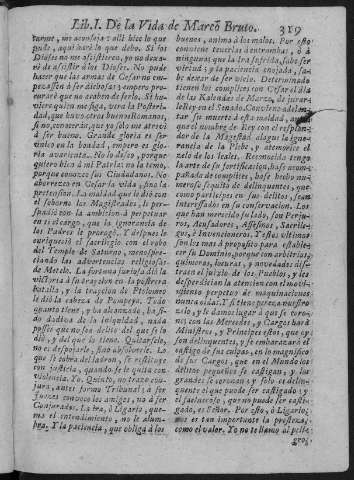 Lib. I. De la Vida de Marco Bruto. 319
turme, me aconseja: allì hice lo que
pude, aqui harè lo que debo. Si los
Dioses no me assistieren, yo no dexa-
rè de assistir à los Dioses. No pude
hacer que las armas de Cesar no em-
pezassen à ser dichosas; empero procu-
rarè que no acaben de serlo. Si hu-
viere quien me siga, verà la Posteri-
dad, que huvo otros buenos Romanos,
si no, conocerà, que yo solo me atrevì
à ser bueno. Grande gloria es ser
unico en la bondad, empero es glo-
ria avarienta. No lo dudo, porque
quiero bien à mi Patria: no la temo,
porque conozco sus Ciudadanos. No
aborrezco en Cesar la vida, sino la
pretension. La maldad que le diò con
el soborno los Magistrados, le per-
suadiò con la ambicion à perpetuar
en sì el cargo, que la ignorancia de
los Padres le prorogò. Y despues le
enriqueciò el sacrilegio con el robo
del Templo de Saturno, menospre-
ciando las advertencias religiosas
de Metelo. La fortuna furiosa diò la
victoria à su traycion en la postrera
batalla, y la traycion de Ptolomeo
le diò la cabeza de Pompeyo. Todo
quanto tiene, y ha alcanzado, ha si-
do dadiva de la iniquidad, nada
possee que no sea delito del que se lo
diò, y del que lo tiene. Quitarselo,
no es despojarle, sino absolverle. Lo
que se cobra del ladron, se restituye
con justicia, quando se le quita con
violencia. Yo, Quinto, no trato con-
jura, antes formo Tribunal: à ser
Jueces convoco los amigos, no à ser
Conjurados. La ira, ò Ligario, que-
ma el entendimiento, no le alum-
bra. Y la paciencia, que obliga à los
buenos, anima à los malos. Por esto
conviene tenerlas à entrambas, ò à
ninguna: que la ira sufrida, sabe ser
virtud; y la paciencia enojada, sa-
be dexar de ser vicio. Determinado
tienen los complices con Cesar el dia
de las Kalendas de Marzo, de jurar-
le Rey en el Senado. Conviene adelan-
tar su muerte à esta maldad, antes
que el nombre de Rey con el resplan-
dor de la Magestad alague la igno-
rancia de la Plebe, y atemorice el
zelo de los leales. Reconocido tengo
la arte de su fortificacion, hase acom-
pañado de complices, hase hecho nu-
meroso se quito de delinquentes, que
como participes en sus delitos, sean
interessados en su conservacion. Los
que han merecido su lado, son Perju-
ros, Assesinadores, Assesinos, Sacrile-
gos, è Incontinentes. Y estos vitimos
son los mas à proposito para estable-
cer su Dominio, porque con arbitrios,
quimeras, usuras, y novedades dis-
traen el juizio de los Pueblos, y les
desperdician la atencion con el movi-
miento perpetuo de maquinaciones
nunca oidas. Y si tiene pereza nuestro
zelo, y le damos lugar à que se coro-
ne; con las Mercedes, y Cargos harà
Ministros, y Principes estos, que oy
son delinquentes, y se embarazarà el
castigo de sus culpas, en lo magnifico
de sus Cargos, que en el Mundo los
delitos pequeños se castigan, y los
grandes se coronan, y solo es delin-
quente el que puede ser castigado; y
el facineroso, que no puede ser casti-
gado, es Señor. Por esto, ò Ligario,
nos es tan importante la presteza,
como el valor. Yo no te llamo al peli-
gros